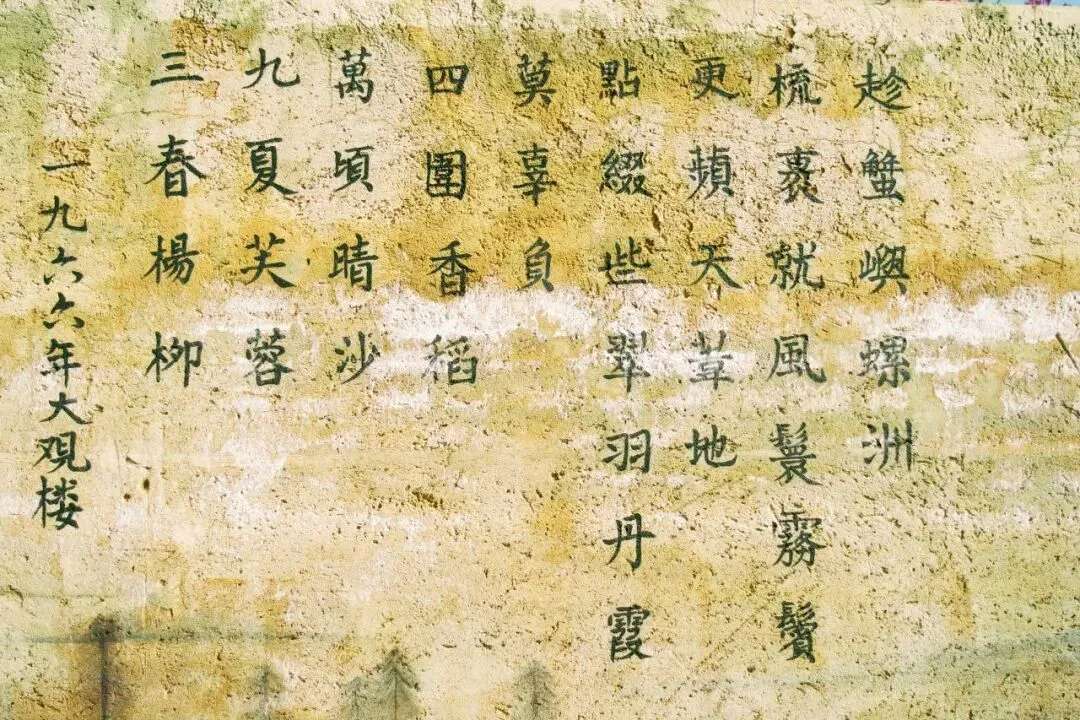 趁蟹嶼螺洲
梳裹就風鬟霧鬢
更蘋天葦地
點綴些翠羽丹霞
莫辜負
四圍香稻
萬頃晴沙
九夏芙蓉
三春楊柳
一九六六年大观楼